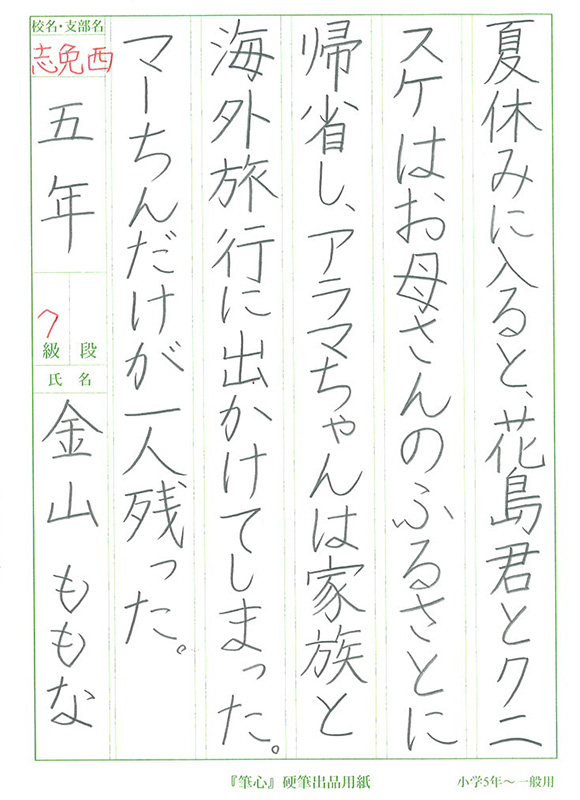 夏休みに入ると、花島君とクニ
スケはお母さんのふるさとに
帰省し、アラマちゃんは家族と
海外旅行に出かけてしまった。
マーちんだけが一人残った。
校名・支部名
志免西
五年
7
級 段
氏名
金山ももな
『筆心』硬筆出品用紙
小学5年～一般用